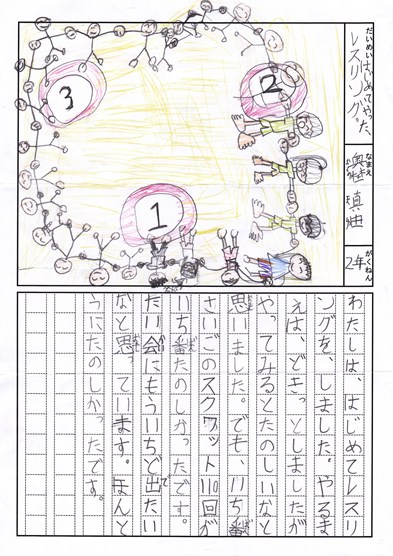 だいめい
はじめてやった、
レスリング。
なまえ
がくねん
2年
3
2
1
わたしは、はじめてレスリ
ングを、しました。やるま
えは、どきっとしましたが
やってみるとたのしいなと
思いました。でも、いち番
さいごのスクワット110回が
いち番たのしかったです。
たい会にもういちど出たい
なと思っています。ほんと
うにたのしかったです。